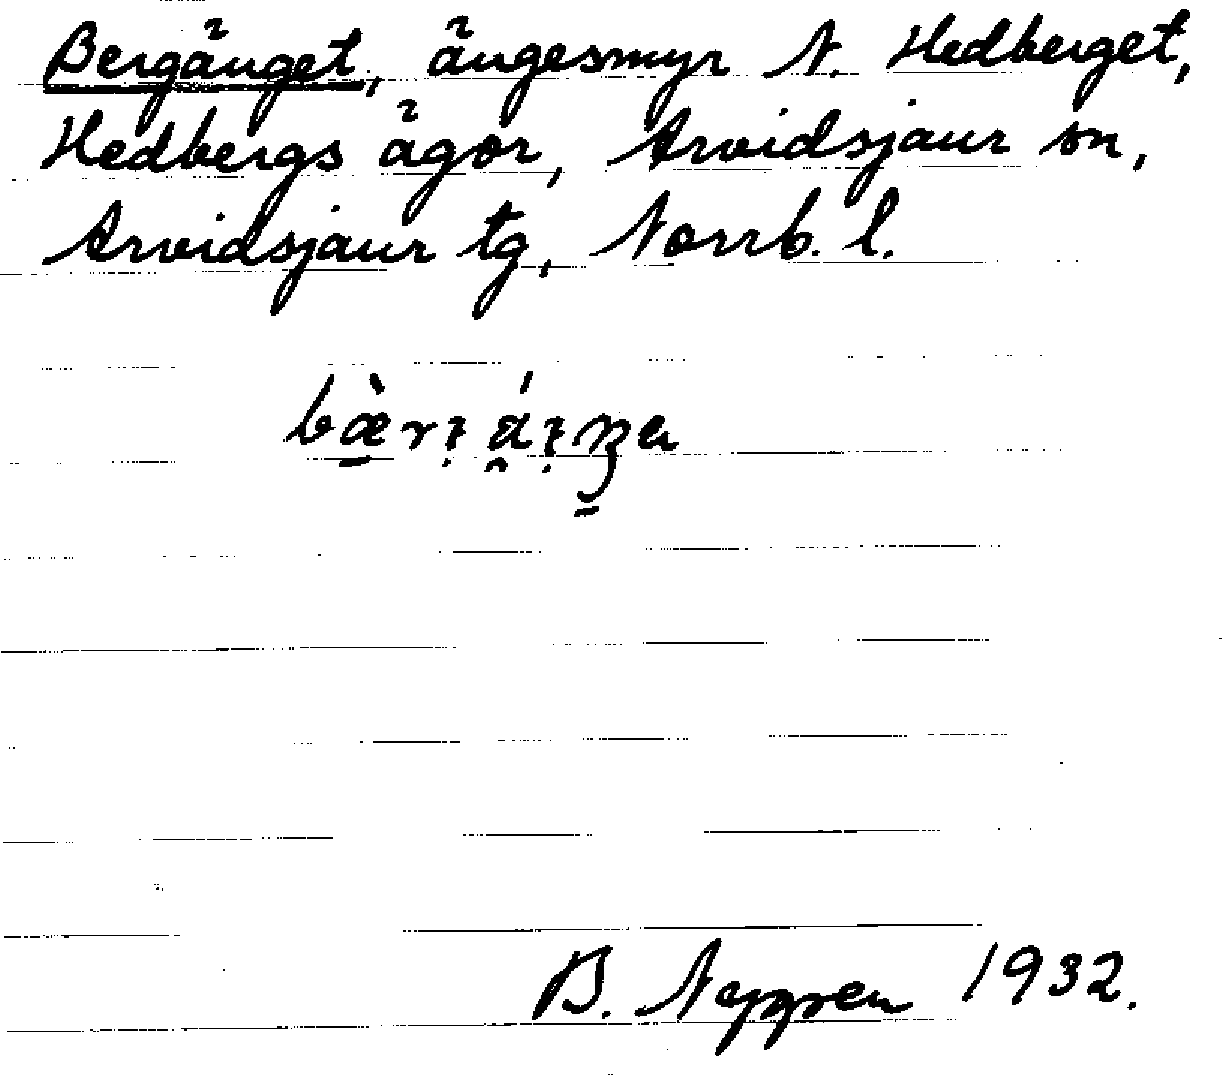 Bergänget, ängesmyr N. Hedberget,
Hedbergs ägor, Arvidsjaur sn,
Arvidsjaur tg, Norrb. l.
B. 1932.